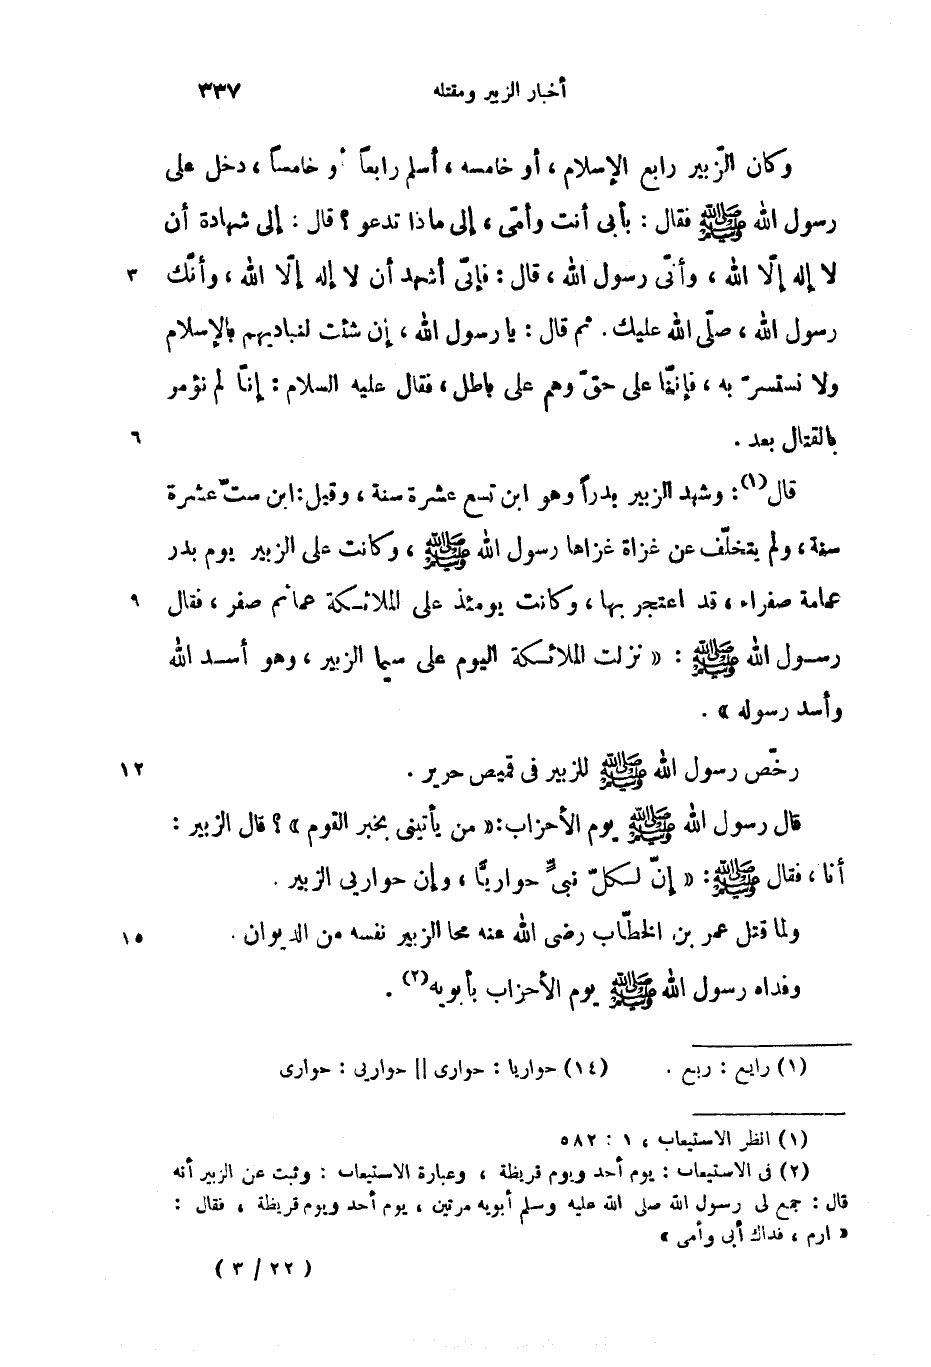 أخبار الزبير ومقتله ٣٣٧
وكان الزّبير رابع الإسلام، أو خامسه، أسلم رابعاً أو خامساً، دخل على
رسول الله ﷺ فقال: بأبى أنت وأمّى، إلى ماذا تدعو؟ قال: إلى شهادة أن
لا إله إلّا الله، وأنّى رسول الله، قال: فإنّى أشهد أن لا إله إلّا الله، وأنّك ٣
رسول الله، صلّى الله عليك. ثم قال: يا رسول الله، إن شئت لنباديهم بالإسلام
ولا نستسرّ به، فإنّنا على حقّ وهم على باطل، فقال عليه السلام: إنّا لم نؤمر
بالقتال بعد. ٦
قال(١): وشهد الزبير بدراً وهو ابن تسع عشرة سنة، وقيل: ابن ستّ عشرة
سنة، ولم يتخلّف عن غزاة غزاها رسول الله ﷺ، وكانت على الزبير يوم بدر
عمامة صفراء، قد اعتجر بها، وكانت يومئذ على الملائكة عمائم صفر، فقال ٩
رسول الله ﷺ: «نزلت الملائكة اليوم على سيما الزبير، وهو أسد الله
وأسد رسوله».
رخّص رسول الله ﷺ للزبير فى قميص حرير. ١٢
قال رسول الله ﷺ يوم الأحزاب: «من يأتينى بخبر القوم»؟ قال الزبير:
أنا، فقال ﷺ: «إنّ لكلّ نبىٍّ حواريًّا، وإن حواريى الزبير.
ولما قتل عمر بن الخطّاب رضى الله عنه محا الزبير نفسه من الديوان. ١٥
وفداه رسول الله ﷺ يوم الأحزاب بأبويه(٢).
(١) رابع: ربع. (١٤) حواريا: حوارى || حواريى: حوارى
(١) انظر الاستيعاب، ١: ٥٨٢
(٢) فى الاستيعاب: يوم أحد ويوم قريظة، وعبارة الاستيعاب: وثبت عن الزبير أنه
قال: جمع لى رسول الله صلى الله عليه وسلم أبويه مرتين، يوم أحد ويوم قريظة، فقال:
«ارم، فداك أبى وأمى»
(٣/٢٢)